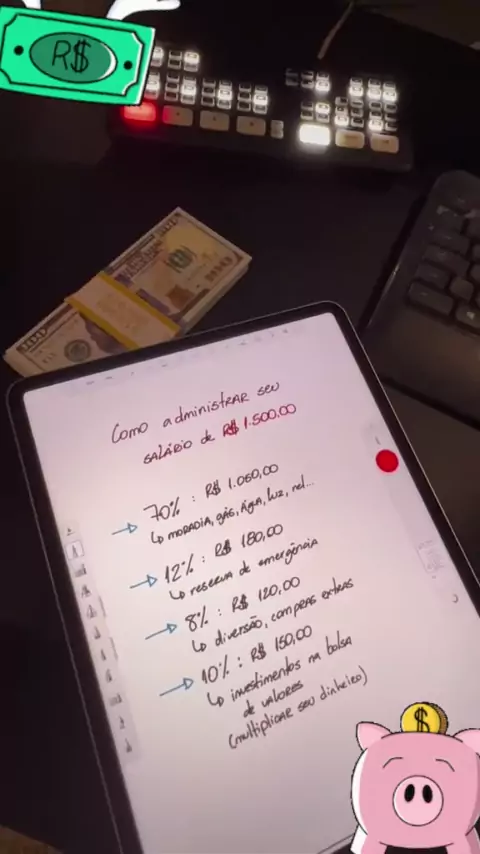 R$
100
100
Como administrar seu
salário de R$ 1.500,00
70% : R$ 1.060,00
moradia, gás, água, luz, net...
12% : R$ 180,00
reserva de emergência
8% : R$ 120,00
diversão, compras extras
10% : R$ 150,00
investimentos na bolsa
de valores
(multiplicar seu dinheiro)
$